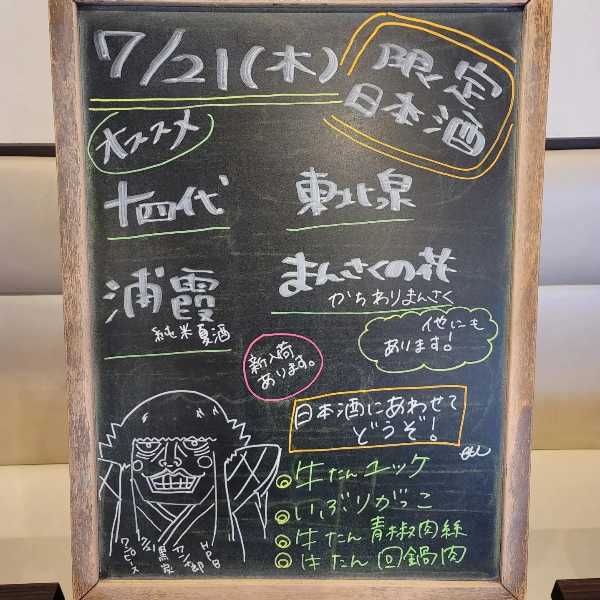 7/21(木)
限定
日本酒
オススメ
十四代
東北泉
浦霞
純米夏酒
まんさくの花
かちわりまんさく
他にも
あります!
新入荷
あります。
日本酒にあわせて
どうぞ!
牛たんユッケ
いぶりがっこ
牛たん 青椒肉絲
牛たん 回鍋肉
HPB
カン十郎
黒炭
7/21
ワンピース